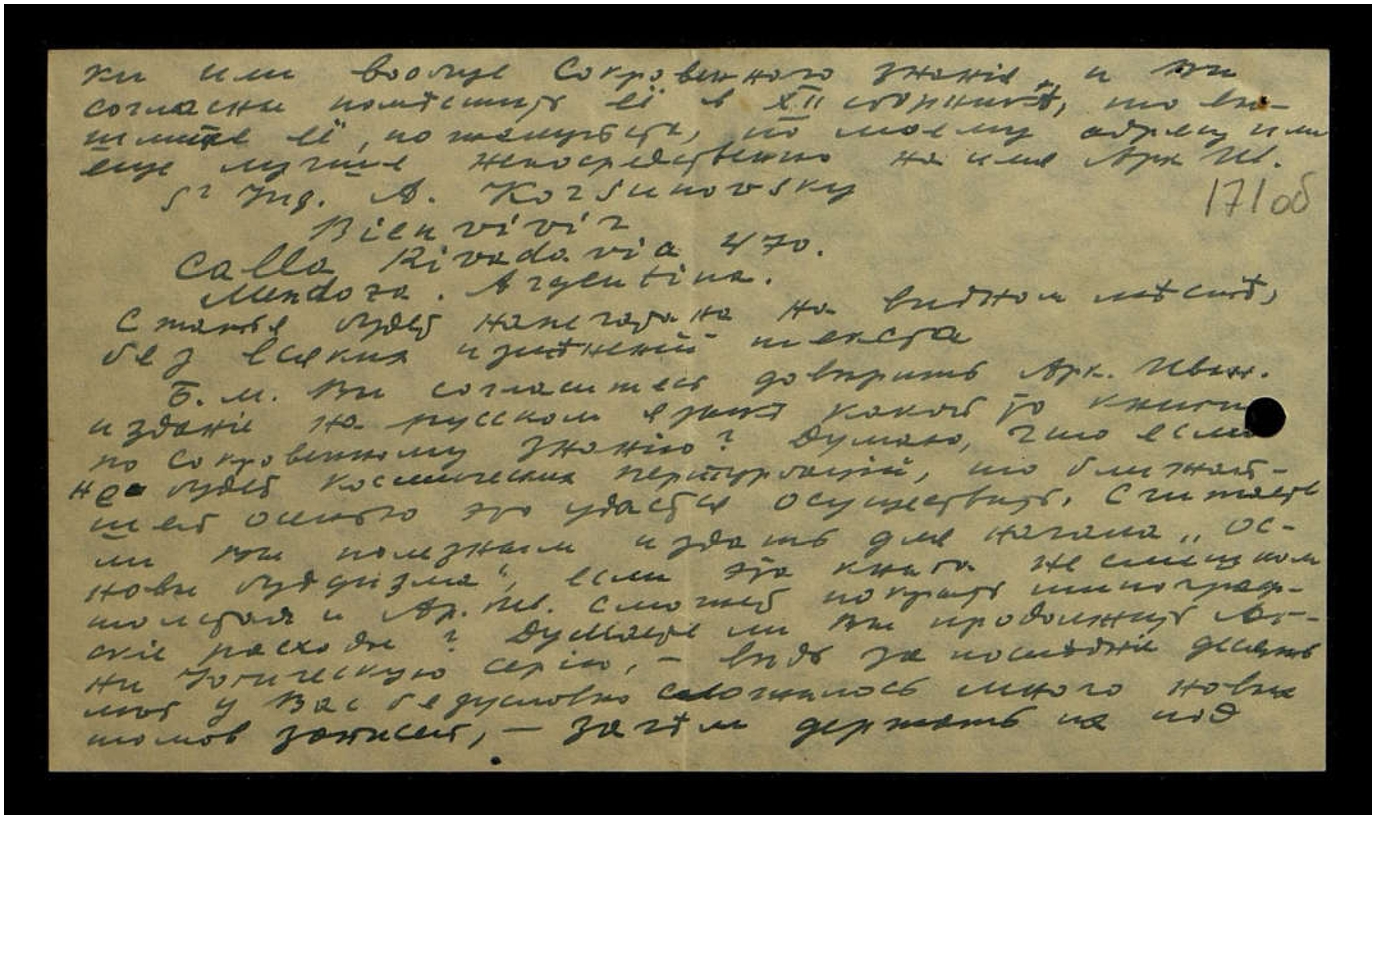 ки или вообще Сокровенного Знанія, и Вы
согласны помѣстить её в XII сборникѣ, то вы-
шлите её, пожалуйста, по моему адресу или
еще лучше непосредственно на имя Арк Ив.
171об
Sr Ing. A. Korsunovsky
Bien vivir
Calla Rivadavia 470.
Mendoza. Argentina.
Статья будет напечатана на видном мѣстѣ,
без всяких измѣненій текста
Б. м. Вы согласитесь довѣрить Арк. Иван.
изданіе на русском языкѣ какой то книги
по Сокровенному Знанію? Думаю, что если
не будет космических пертурбацій, то ближай-
шей осенью это удастся осуществить. Считаете
ли Вы полезным издать для начала „Ос-
новы буддизма", если эта книга не слишком
толстая и Ар. Ив. сможет покрыть типограф-
скіе расходы? Думаете ли Вы продолжить Аг-
ни Іогическую серію, – вѣдь за послѣдніе десять
лѣт у Вас безусловно сложилось много новых
томов записей, – зачѣм держать их под